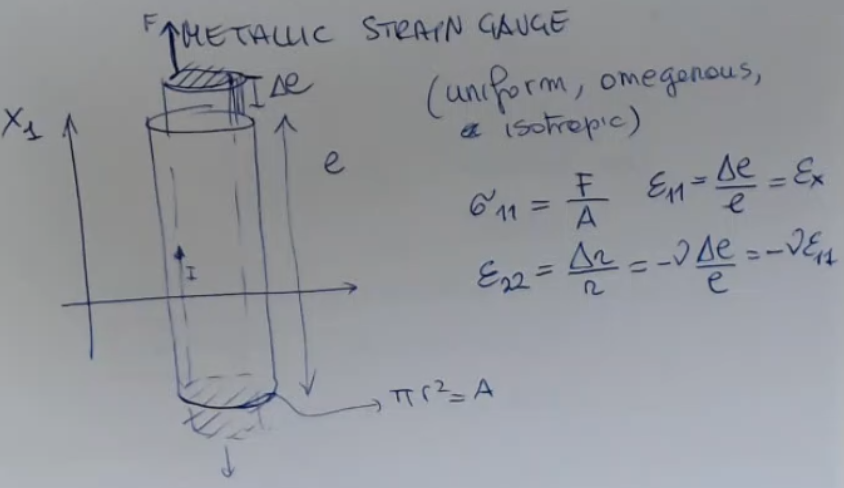 METALLIC STRAIN GAUGE
F
Δe
(uniform, omogenous,
isotropic)
X₁
e
σ₁₁ = F/A  ε₁₁ = Δe/e = εₓ
ε₂₂ = Δr/r = -ν Δe/e = -νε₁₁
I
πr² = A